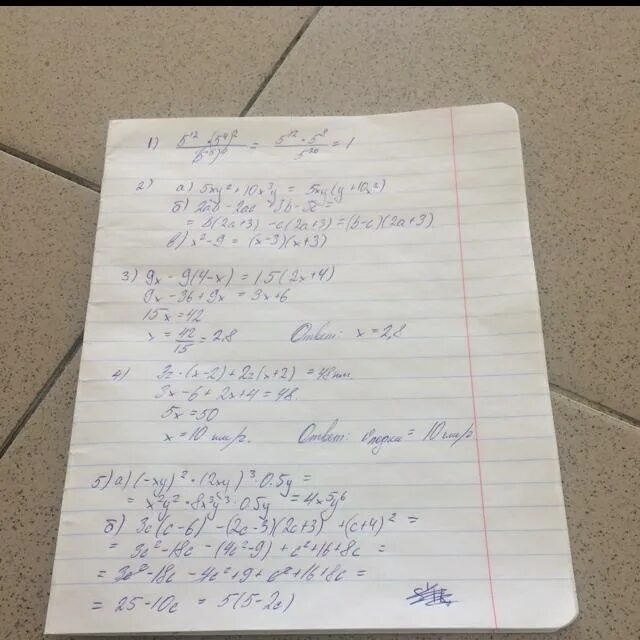 1) 5¹² · (5⁴)² / (5⁻⁵)⁶ = 5¹² · 5⁸ / 5²⁰ = 1
2) а) 5xy² + 10x³y = 5xy(y + 10x²)
б) 2ab - 2ac + 3b - 3c =
= b(2a+3) - c(2a+3) = (b-c)(2a+3)
в) x² - 9 = (x-3)(x+3)
3) 9x - 9(4-x) = 15(2x+4)
9x - 36 + 9x = 3x + 6
15x = 42
x = 42/15 = 2,8 Ответ: x = 2,8
4) 3 · (x-2) + 2 (x+2) = 48км.
3x - 6 + 2x + 4 = 48.
5x = 50
x = 10 км/г. Ответ: Vлодки = 10 км/г
5) а) (-xy)² · (2xy)³ · 0.5y =
= x²y² · 8x³y³ · 0.5y = 4x5y⁶
б) 3c(c-6) - (2c-3)(2c+3) + (c+4)² =
= 3c² - 18c - (4c² - 9) + c² + 16 + 8c =
= 3c² - 18c - 4c² + 9 + c² + 16 + 8c =
= 25 - 10c = 5(5-2c)